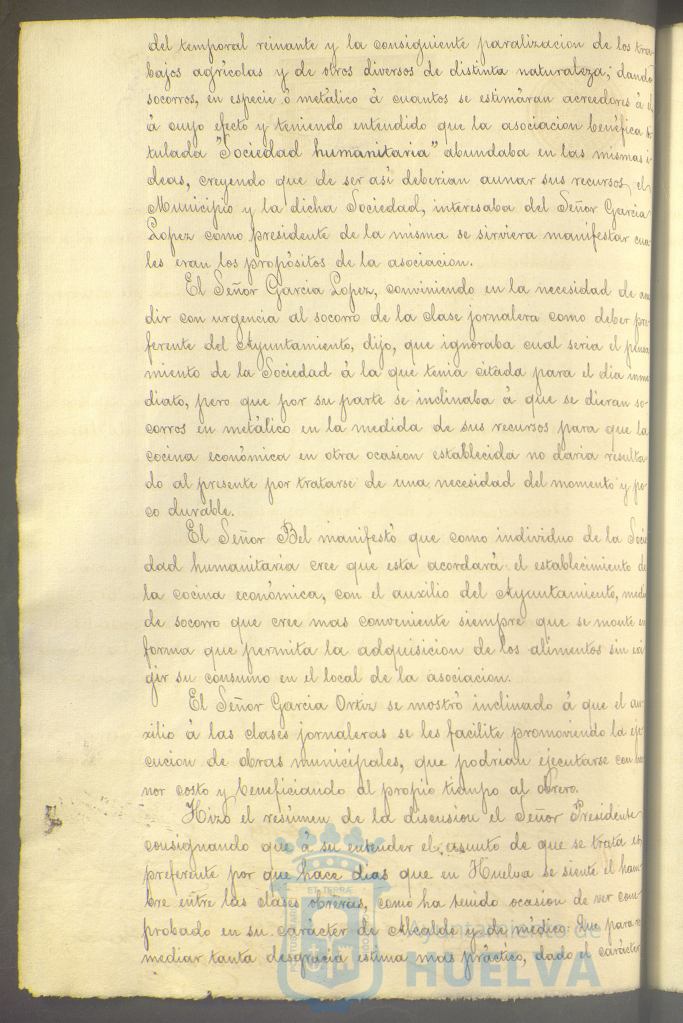 del temporal reinante y la consiguiente paralizacion de los tra-
bajos agrícolas y de otros diversos de distinta naturaleza; dando
socorros, en especie ó metálico á cuantos se estimáran acreedores á él
á cuyo efecto y teniendo entendido que la asociacion benéfica ti-
tulada "Sociedad humanitaria" abundaba en las mismas i-
deas, creyendo que de ser asi deberian aunar sus recursos el
Municipio y la dicha Sociedad, interesaba del Señor Garcia
Lopez como presidente de la misma se sirviera manifestar cua-
les eran los propósitos de la asociacion.
El Señor Garcia Lopez, conviniendo en la necesidad de acu-
dir con urgencia al socorro de la clase jornalera como deber pre-
ferente del Ayuntamiento, dijo, que ignoraba cual seria el pensa-
miento de la Sociedad á la que tenia citada para el dia inme-
diato, pero que por su parte se inclinaba á que se dieran so-
corros en metálico en la medida de sus recursos para que la
cocina económica en otra ocasion establecida no daria resulta-
do al presente por tratarse de una necesidad del momento y po-
co durable.
El Señor Bel manifestó que como individuo de la Socie-
dad humanitaria cree que esta acordará el establecimiento de
la cocina económica, con el auxilio del Ayuntamiento, medio
de socorro que cree mas conveniente siempre que se monte en
forma que permita la adquisicion de los alimentos sin exi-
gir su consumo en el local de la asociacion.
El Señor Garcia Ortiz se mostró inclinado á que el au-
xilio á las clases jornaleras se les facilite promoviendo la eje-
cucion de obras municipales, que podrian ejecutarse con me-
nor costo y beneficiando al propio tiempo al obrero.
Hizo el resúmen de la discusion el Señor Presidente
consignando que á su entender el asunto de que se trata es
preferente por que hace dias que en Huelva se siente el ham-
bre entre las clases obreras, como ha tenido ocasion de ver com-
probado en su carácter de Alcalde y de médico. Que para re-
mediar tanta desgracia estima mas práctico, dado el carácter
Ayuntamiento de
HUELVA